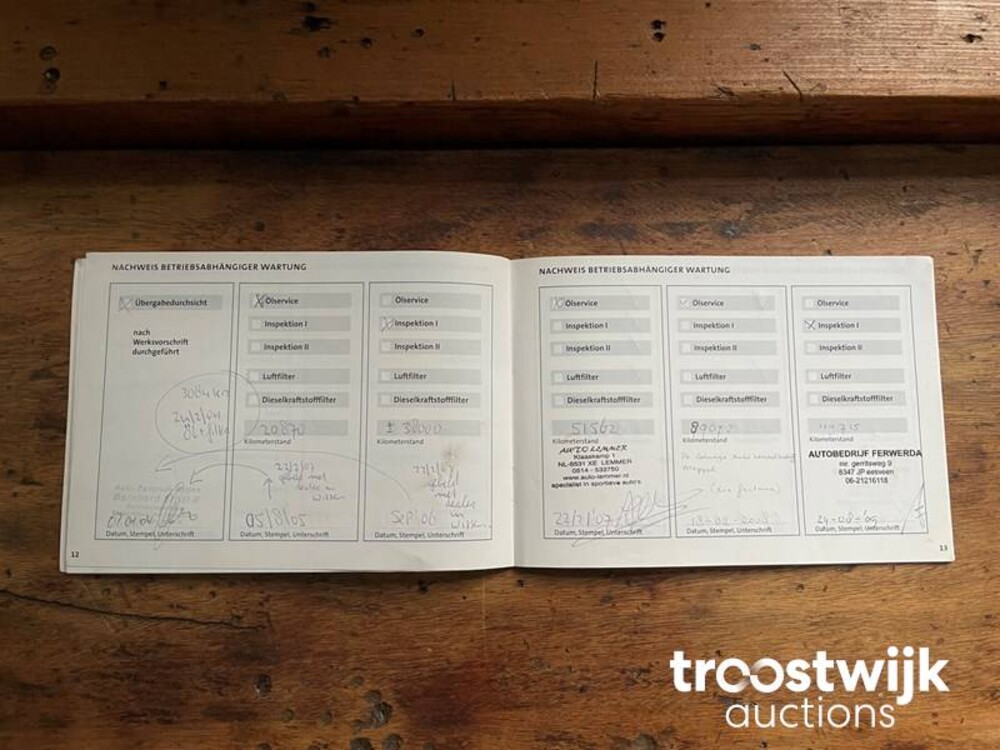 NACHWEIS BETRIEBSABHÄNGIGER WARTUNG
Übergabedurchsicht
nach
Werksvorschrift
durchgeführt
3084 km
07.01.04
Datum, Stempel, Unterschrift
Ölservice
Inspektion I
Inspektion II
Luftfilter
Dieselkraftstofffilter
20870
Kilometerstand
22/2/07
gebeld met
dealer in
05/8/05
Datum, Stempel, Unterschrift
Ölservice
Inspektion I
Inspektion II
Luftfilter
Dieselkraftstofffilter
± 38000
Kilometerstand
22/2/07
gebeld
met
dealer
in
Sep' 06
Datum, Stempel, Unterschrift
12
NACHWEIS BETRIEBSABHÄNGIGER WARTUNG
Ölservice
Inspektion I
Inspektion II
Luftfilter
Dieselkraftstofffilter
51562
Kilometerstand
AUTO LEMMER
Klaaskamp 1
NL-8531 XE LEMMER
0514 - 533750
www.auto-lemmer.nl
specialist in sportieve auto's
22/2/'07
Datum, Stempel, Unterschrift
Ölservice
Inspektion I
Inspektion II
Luftfilter
Dieselkraftstofffilter
Kilometerstand
Datum, Stempel, Unterschrift
Ölservice
Inspektion I
Inspektion II
Luftfilter
Dieselkraftstofffilter
Kilometerstand
AUTOBEDRIJF FERWERDA
mr. gerritsweg 9
8347 JP eesveen
06-21216118
24-08-'09
Datum, Stempel, Unterschrift
13
troostwijk
auctions